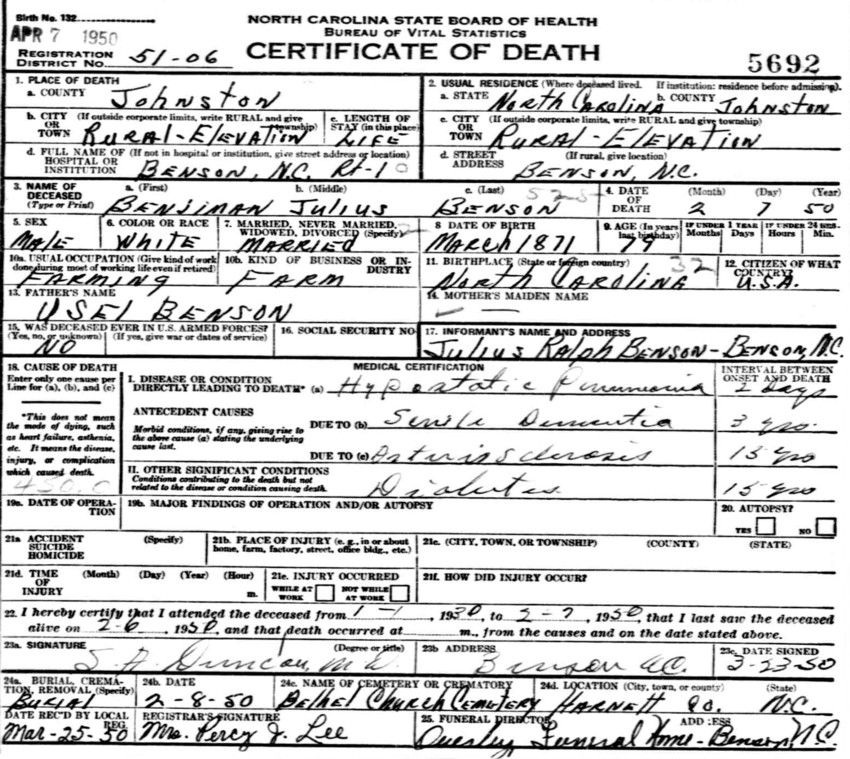 Birth No. 132
APR 7 1950
NORTH CAROLINA STATE BOARD OF HEALTH
BUREAU OF VITAL STATISTICS
CERTIFICATE OF DEATH
REGISTRATION DISTRICT No. 51-06
5692
1. PLACE OF DEATH
a. COUNTY Johnston
2. USUAL RESIDENCE (Where deceased lived. If institution: residence before admission).
a. STATE North Carolina b. COUNTY Johnston
b. CITY OR TOWN (If outside corporate limits, write RURAL and give township) Rural-Elevation
c. LENGTH OF STAY (in this place) LIFE
c. CITY OR TOWN (If outside corporate limits, write RURAL and give township) Rural-Elevation
d. FULL NAME OF HOSPITAL OR INSTITUTION (If not in hospital or institution, give street address or location) Benson, N.C. Rt-1
d. STREET ADDRESS (If rural, give location) Benson, N.C.
3. NAME OF DECEASED (Type or Print)
a. (First) Benjiman b. (Middle) Julius c. (Last) Benson
4. DATE OF DEATH (Month) 2 (Day) 7 (Year) 50
5. SEX Male
6. COLOR OR RACE White
7. MARRIED, NEVER MARRIED, WIDOWED, DIVORCED (Specify) Married
8 DATE OF BIRTH March 1871
9. AGE (In years last birthday) 79
IF UNDER 1 YEAR Months Days
IF UNDER 24 HRS. Hours Min.
10a. USUAL OCCUPATION (Give kind of work done during most of working life even if retired) Farming
10b. KIND OF BUSINESS OR INDUSTRY Farm
11. BIRTHPLACE (State or foreign country) 32 North Carolina
12. CITIZEN OF WHAT COUNTRY? U.S.A.
13. FATHER'S NAME Usel Benson
14. MOTHER'S MAIDEN NAME —
15. WAS DECEASED EVER IN U.S. ARMED FORCES? (Yes, no, or unknown) (If yes, give war or dates of service) NO
16. SOCIAL SECURITY NO
17. INFORMANT'S NAME AND ADDRESS Julius Ralph Benson-Benson, N.C.
18. CAUSE OF DEATH
Enter only one cause per Line for (a), (b), and (c)
MEDICAL CERTIFICATION
INTERVAL BETWEEN ONSET AND DEATH
I. DISEASE OR CONDITION DIRECTLY LEADING TO DEATH* (a) Hypostatic Pneumonia 2 days
*This does not mean the mode of dying, such as heart failure, asthenia, etc. It means the disease, injury, or complication which caused death.
450.0
ANTECEDENT CAUSES
Morbid conditions, if any, giving rise to the above cause (a) stating the underlying cause last.
DUE TO (b) Senile Dementia 3 yrs.
DUE TO (c) Arteriosclerosis 15 yrs
II. OTHER SIGNIFICANT CONDITIONS
Conditions contributing to the death but not related to the disease or condition causing death.
Diabetes 15 yrs
19a. DATE OF OPERATION
19b. MAJOR FINDINGS OF OPERATION AND/OR AUTOPSY
20. AUTOPSY?
YES NO
21a ACCIDENT SUICIDE HOMICIDE (Specify)
21b. PLACE OF INJURY (e. g., in or about home, farm, factory, street, office bldg., etc.)
21c. (CITY, TOWN, OR TOWNSHIP) (COUNTY) (STATE)
21d. TIME OF INJURY (Month) (Day) (Year) (Hour) m.
21e. INJURY OCCURRED
WHILE AT WORK NOT WHILE AT WORK
21f. HOW DID INJURY OCCUR?
22. I hereby certify that I attended the deceased from 1-1, 1930, to 2-7, 1950, that I last saw the deceased
alive on 2-6, 1950, and that death occurred at m., from the causes and on the date stated above.
23a. SIGNATURE (Degree or title) Duncan, M.D.
23b ADDRESS Benson N.C.
23c. DATE SIGNED 3-23-50
24a. BURIAL, CREMATION, REMOVAL (Specify) Burial
24b. DATE 2-8-50
24c. NAME OF CEMETERY OR CREMATORY Bethel Church Cemetery
24d. LOCATION (City, town, or county) (State) Harnett Co. N.C.
DATE REC'D BY LOCAL REG. Mar-25-50
REGISTRAR'S SIGNATURE Mrs. Percy J. Lee
25. FUNERAL DIRECTOR ADDRESS Funeral Home-Benson, N.C.